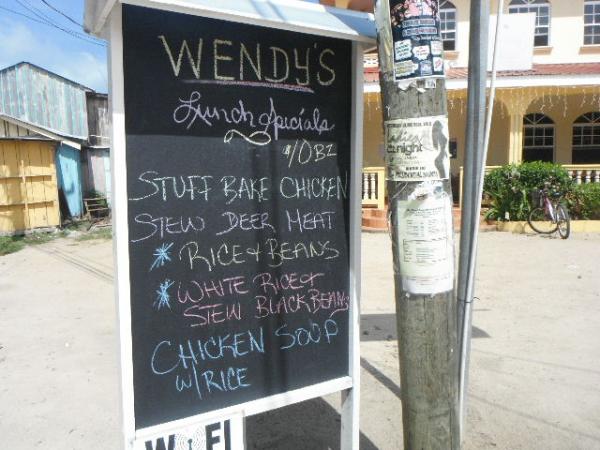 WENDY'S
Lunch Specials
$10BZ
STUFF BAKE CHICKEN
STEW DEER MEAT
* RICE & BEANS
* WHITE RICE &
STEW BLACK BEANS
CHICKEN SOUP
W/ RICE
WiFi
night